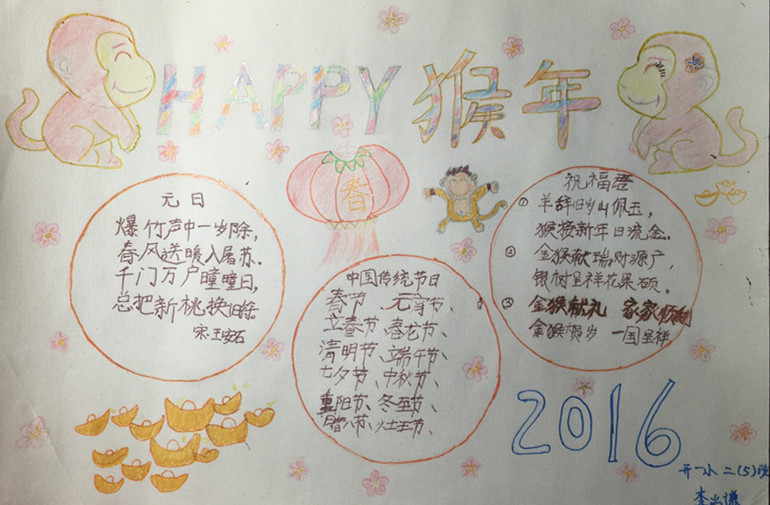 HAPPY 猴年
元日
爆竹声中一岁除，
春风送暖入屠苏．
千门万户曈曈日，
总把新桃换旧符
宋·王安石
春
中国传统节日
春节、元宵节、
立春节、春龙节、
清明节、端午节、
七夕节、中秋节、
重阳节、冬至节、
腊八节、灶王节、
祝福语
① 羊辞旧岁山佩玉，
猴接新年日流金。
② 金猴献瑞财源广，
银树呈祥花果硕。
③ 金猴献礼 家家
金猴贺岁 一国呈祥
2016
开一小 二(5)班
李